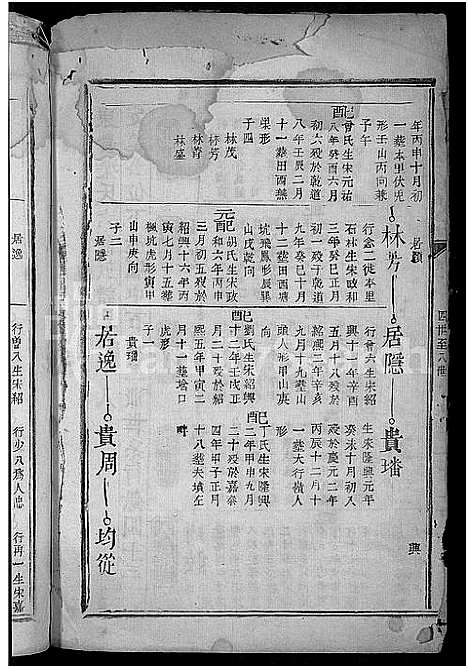 年丙申十月初
一葬本里伏虎
形壬山丙向兼
子午
配曾氏生宋元祐
八年癸酉六月
初六殁於乾道
八年壬辰二月
十一葬田西燕
巢形
子四
林茂
林芳
林菁
林盛
林芳
居隱
行念二徙本里
石林生宋政和
三年癸巳正月
初一殁于乾道
九年癸巳十月
十二葬田西塘
坑飛鳳形辰巽
山戌乾向
元配
胡氏生宋政
和六年丙申
三月初五殁於
紹興十六年丙
寅七月十五葬
楓坑虎形甲
山申庚向
子二
居隱
居逸
居隱
行曾六生宋紹
興十一年辛酉
五月十八殁於
紹熙二年辛亥
九月十九葬山
頭人形甲山英
配
劉氏生宋紹興
十二年壬戌正
月二十殁於紹
熙五年甲寅二
月十一葬壋口
子一
貴璠
貴璠
生宋隆興元年
癸未十月初八
殁於慶元二年
丙辰十二月
一葬大行嶺人
形
配丁氏生宋隆興
二年甲申九月
二十殁於嘉泰
四年甲子正月
十八葬夫墳左
畔
居逸
貴周
均從
四世至八世
興
居逸
行曾八生宋紹
行少八為人忠
行再一生宋嘉